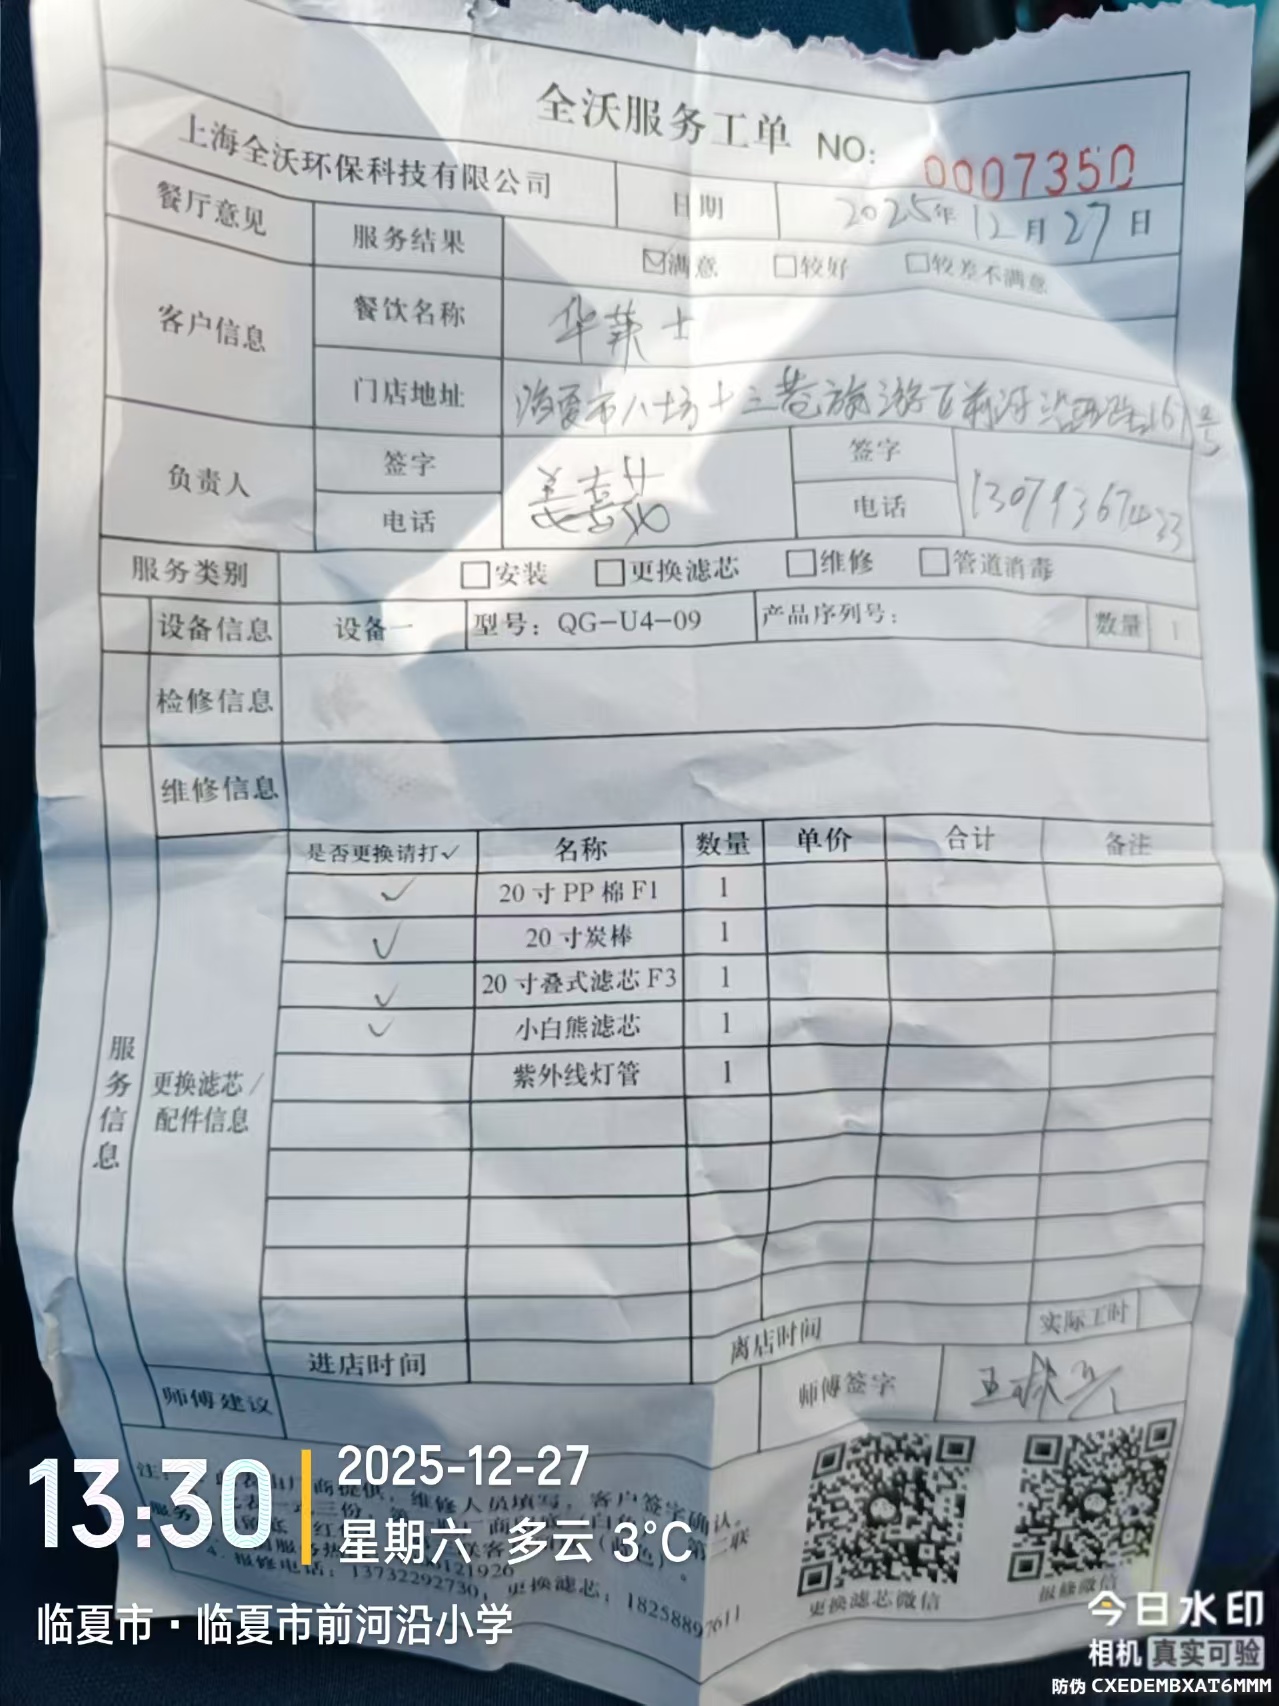 全沃服务工单 NO: 0007350
上海全沃环保科技有限公司 日期 2025年12月27日
餐厅意见 服务结果 ☑满意 □较好 □较差不满意
客户信息 餐饮名称 华莱士
门店地址 临夏市八坊十三巷旅游区前河沿西路161号
负责人 签字 签字
电话 电话 13079367433
服务类别 □安装 □更换滤芯 □维修 □管道消毒
设备信息 设备一 型号：QG-U4-09 产品序列号： 数量 1
检修信息
维修信息
服务信息
更换滤芯/配件信息
是否更换请打✓ 名称 数量 单价 合计 备注
✓ 20寸PP棉F1 1
✓ 20寸炭棒 1
✓ 20寸叠式滤芯F3 1
✓ 小白熊滤芯 1
紫外线灯管 1
进店时间 离店时间 实际工时
师傅建议 师傅签字
维修人员填写，客户签字确认。
4. 报修电话：13732292730，更换滤芯：18258897611
更换滤芯微信 报修微信
13:30 2025-12-27
星期六 多云 3°C
临夏市·临夏市前河沿小学
今日水印
相机 真实可验
防伪 CXEDEMBXAT6MMM